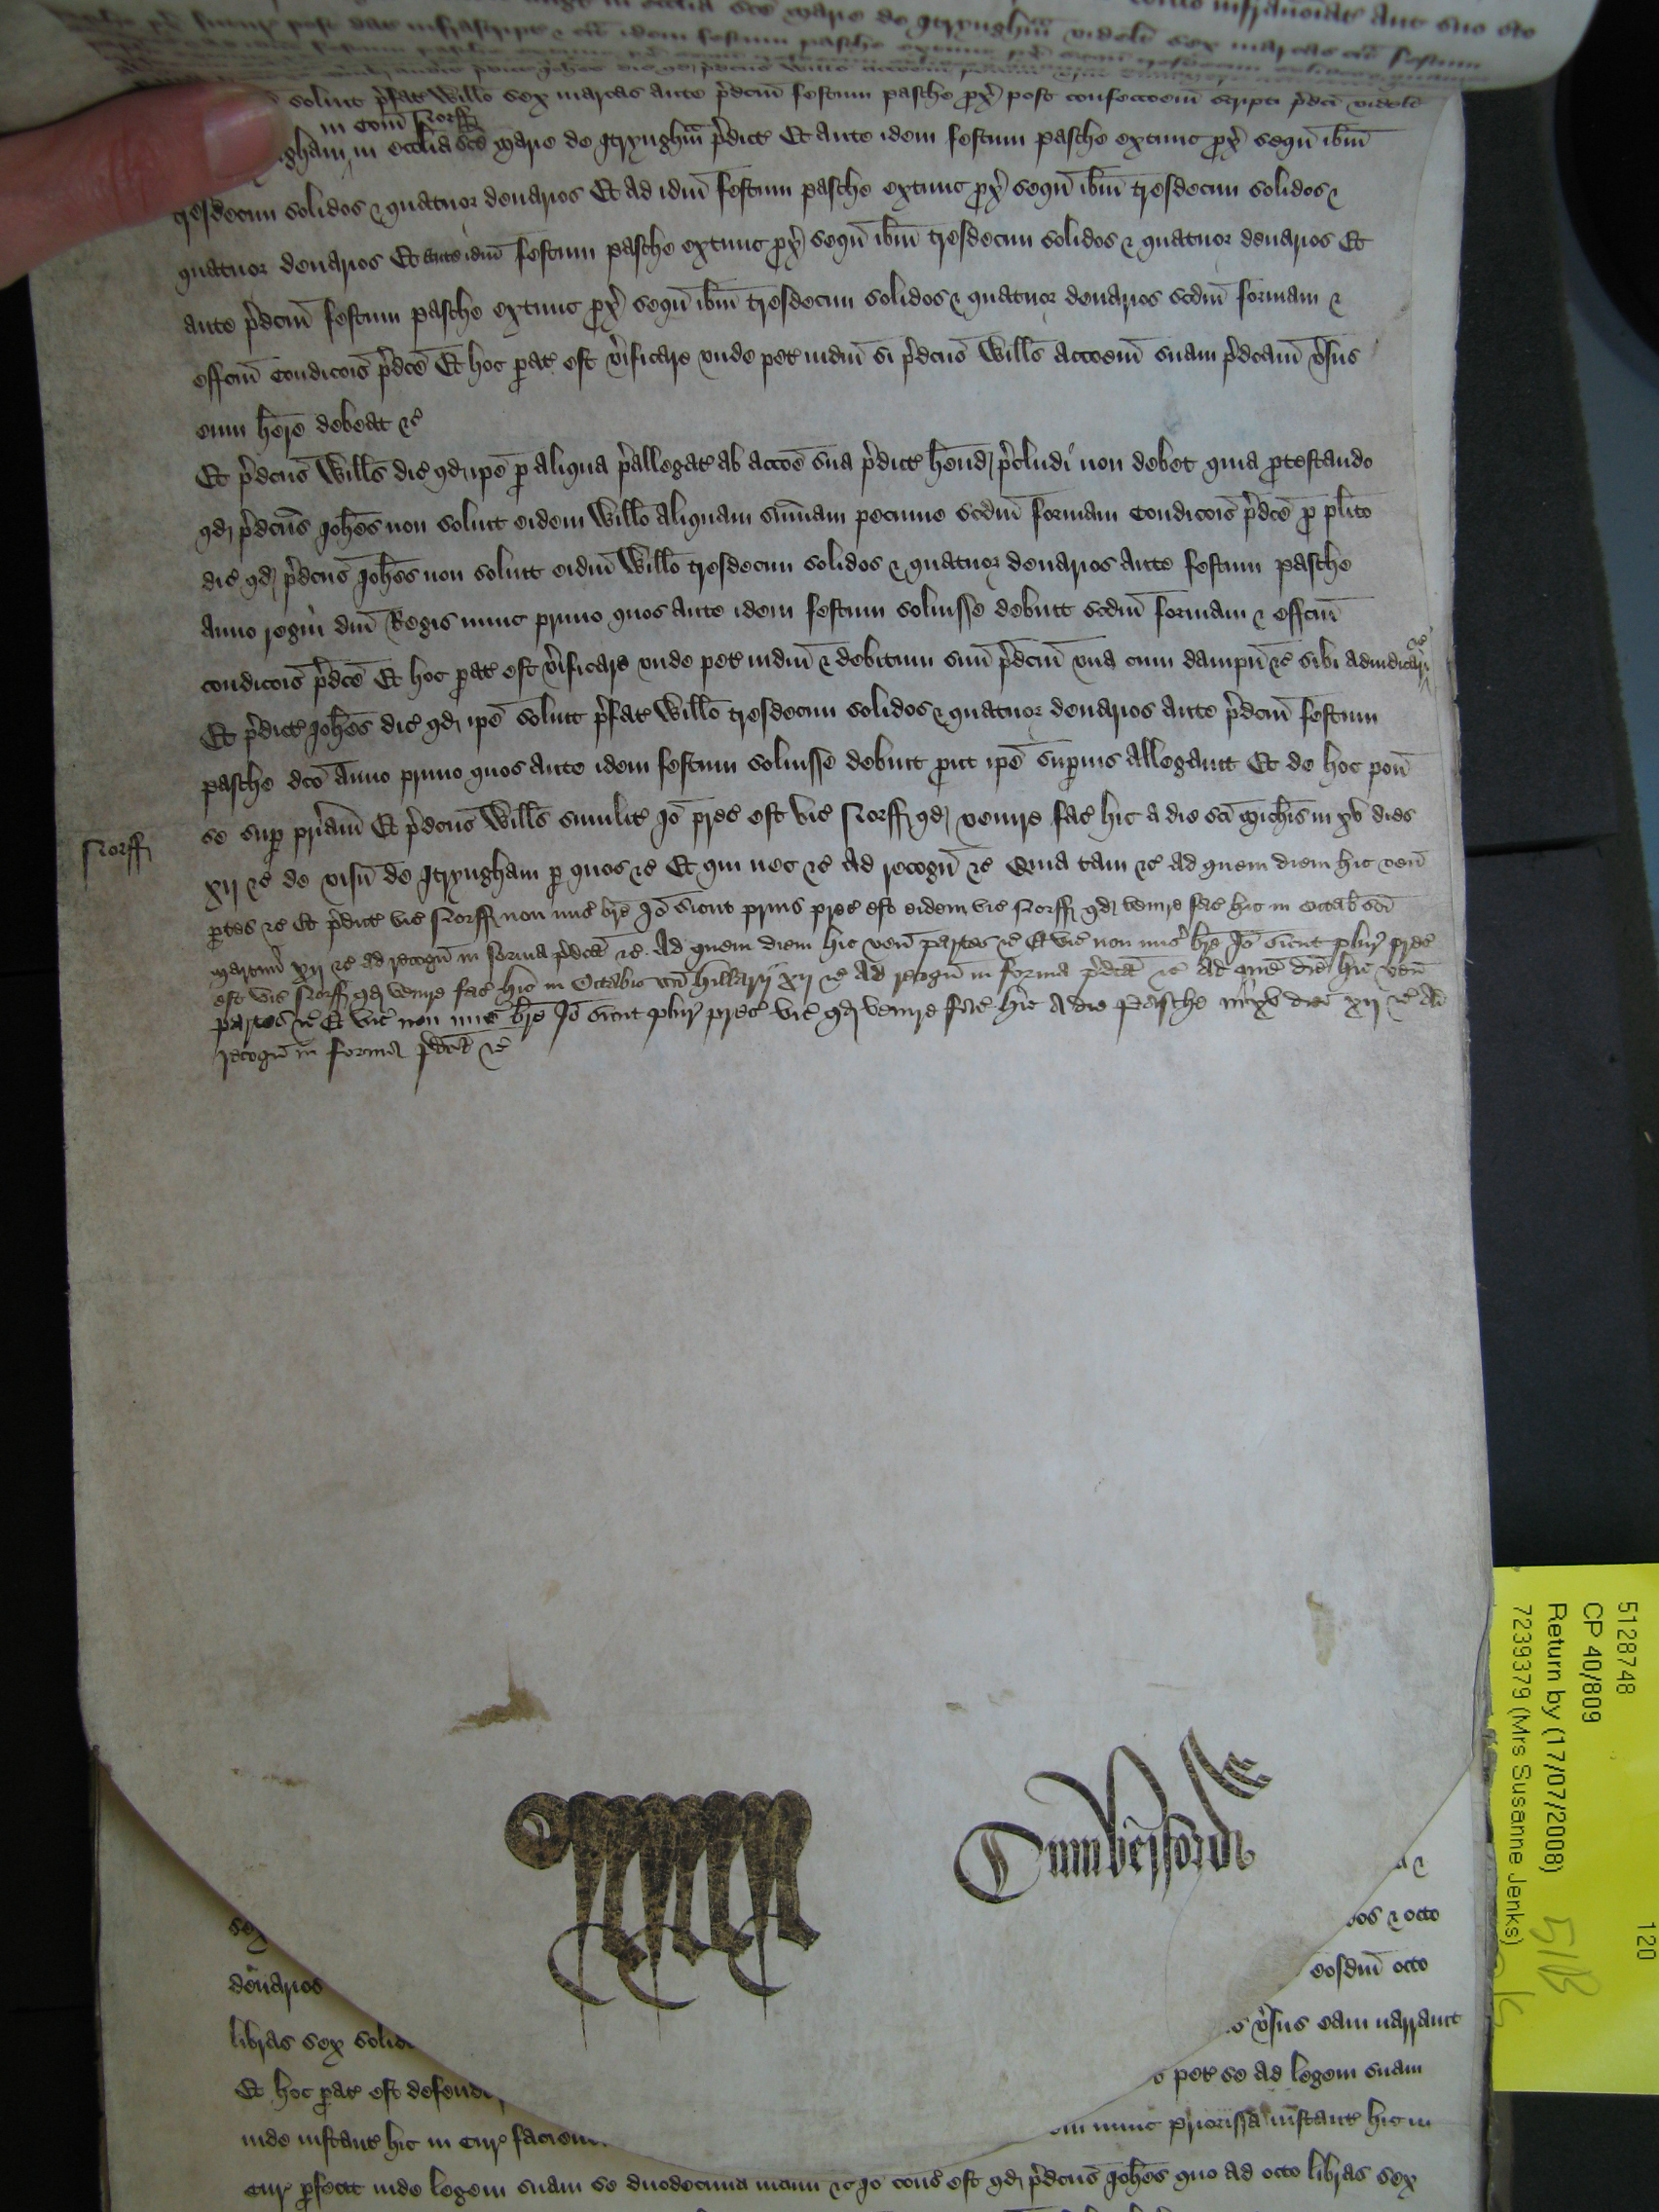 in ecclia sce Marie de Gryngham videlt sex marcas
idem festum pasche
solvit p'fat Willo sex marcas ante p'dcm festum pasche prox' post confeccoem scripti p'dci videlt
in Com Norff
gham in ecclia sce Marie de Gryngham p'dict Et ante idem festum pasche extunc prox' sequ ibm
tresdecim solidos & quatuor denarios Et ad idm festum pasche extunc prox' sequ ibm tresdecim solidos &
quatuor denarios Et ante idm festum pasche extunc prox' sequ ibm tresdecim solidos & quatuor denarios Et
ante p'dcm festum pasche extunc prox' sequ ibm tresdecim solidos & quatuor denarios scdm formam &
effcm Condicois p'dce Et hoc parat est v'ificare unde pet iudm si p'dcus Wills accoem suam p'dcam v'sus
eum here debeat &c
Et p'dcus Wills dic qd ipe p aliqua p'allegat ab accoe sua p'dict hend p'cludi non debet quia protestando
qd p'dcus Johes non solvit eidem Willo aliquam sumam pecunie scdm formam Condicois p'dce pro plito
dic qd p'dcus Johes non solvit eidm Willo tresdecim solidos & quatuor denarios ante festum pasche
Anno regni dni Regis nunc primo quos ante idem festum solvisse debuit scdm formam & effcm
condicois p'dce Et hoc parat est v'ificare unde pet iudm & debitum suu p'dcm una cum dampn &c sibi adiudicari &c
Et p'dict Johes dic qd ipe solvit p'fat Willo tresdecim solidos & quatuor denarios ante p'dcm festum
pasche dco Anno primo quos ante idem festum solvisse debuit prout ipe superius allegavit Et de hoc pon
se sup pr'iam Et p'dcus Wills similit Io prec est vic Norff qd venire fac hic a die sci Michis in xv dies
Norff
xij &c de visn de Gryngham p quos &c Et qui nec &c ad recogn &c Quia tam &c Ad quem diem hic ven
ptes &c Et p'dict vic Norff non mis bre Io sicut prius prec est eidem vic Norff qd venire fac hic in Octab sci
Martini xij &c ad recogn in forma p'dca &c Ad quem diem hic ven partes &c Et vic non mis' bre Io sicut plur' prec
est vic Norff qd venire fac hic in Octabis sci Hillarij xij &c Ad recogn in forma p'dca &c Ad que die hic ven
partes &c Et vic non mis' bre Io sicut plur' prec vic qd venire fac hic A die Pasche in xv dies xij &c Ad
recogn in forma p'dca &c
Cumberford
sex
dos & octo
denarios
eosdm octo
libras sex solid
v'sus eam narravit
Et hoc parat est defend
pet se ad legem suam
inde instant hic in Cur faciend
nunc priorissa instant hic in
Cur p'fecit inde legem suam se duodecima manu &c Io cons est qd p'dcus Johes quo ad octo libras sex
5128748
CP 40/809
Return by (17/07/2008)
7239379 (Mrs Susanne Jenks)
120
51B